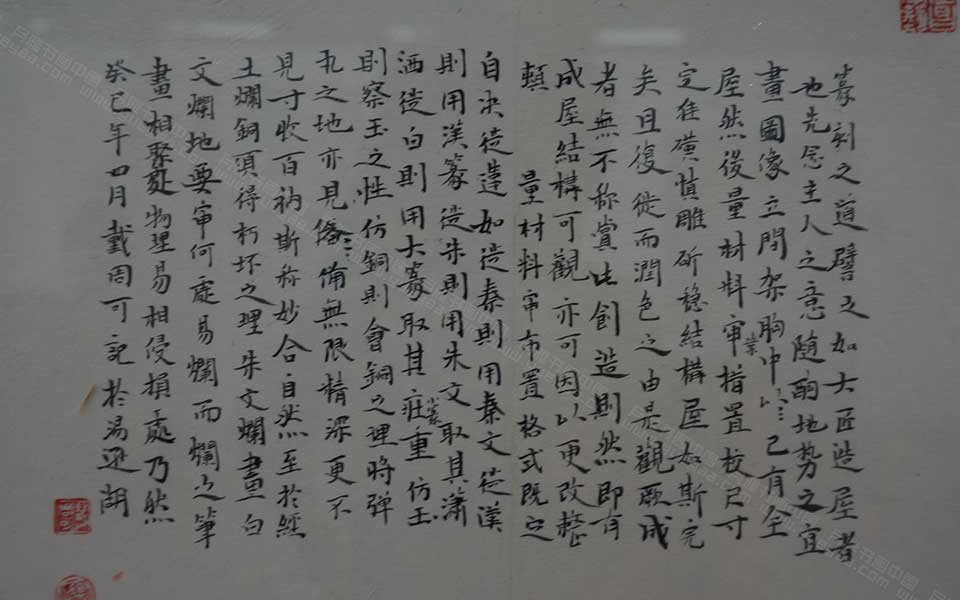 篆刻之道譬之如大匠造屋者
也先念主人之意隨酌地势之宜
畫圖像立間架胸中已有全
屋然後量材料审措置校尺寸
定准橫慎雕斫穩結構屋如斯完
矣且復從而潤色之由是觀厥成
者無不称賞此創造則然即有
成屋結構可觀亦可因以更改整
頓 量材料审布置格式既定
自决造如造秦則用秦文造漢
則用漢篆造朱則用朱文取其瀟
洒造白則用大篆取其莊重仿玉
則察玉之性仿銅則會銅之理將弹
丸之地亦見備無限精深更不
見寸收百衲斯称妙合自然至於經
土爛銅須得朽坏之理朱文爛畫白
文爛地要审何處易爛而爛之筆
畫相聚處物理易相侵損處乃然
癸巳年四月戴周可記於湯逊湖